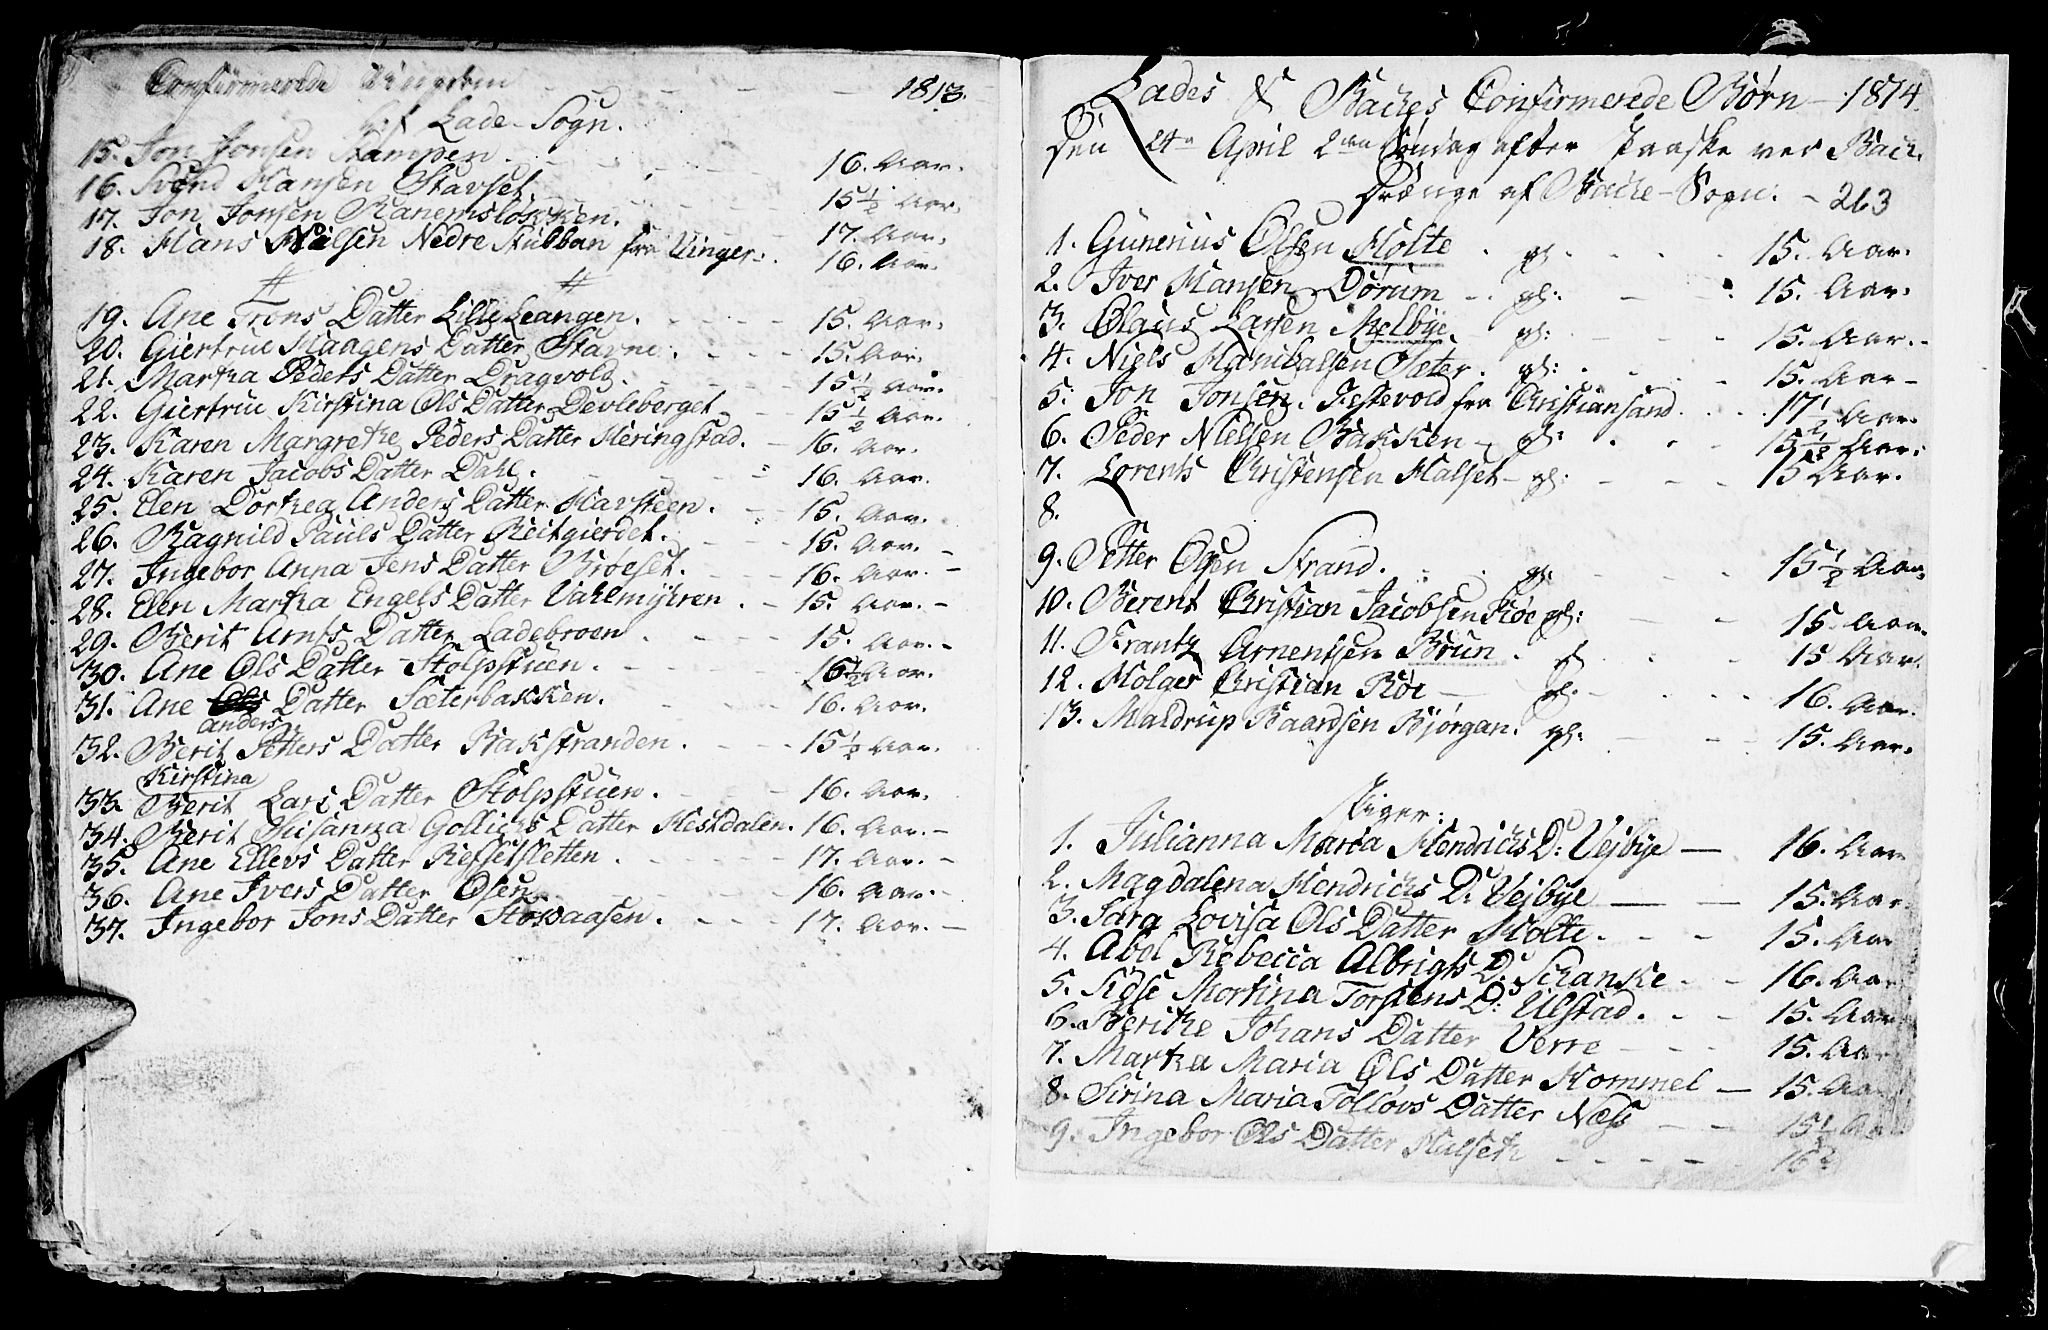 Confirmerede Ungdom - - - 1813.
af Lade-Sogn.
15. Jon Jonsen Kampen. - - - 16. Aar.
16. Svend Hansen Stavset. - - - 15½ Aar.
17. Jon Jonsen Ranemsløkken. - - 17. Aar.
18. Hans Nielsen Nedre Stubban fra Vinger. . 16. Aar.
19. Ane Trons Datter Lille Leangen. - - - 15. Aar.
20. Giertrue Haagens Datter Stavne. - - - 15. Aar.
21. Martha Peders Datter Dragvold. - - - 15½ Aar.
22. Giertrue Kirstina Ols Datter Devleberget - 15½ Aar.
23. Karen Margrethe Peders Datter Heringstad. - 16. Aar.
24. Karen Jacobs Datter Dahl. - - - 16. Aar.
25. Elen Dorthea Anders Datter Havsteen. - 15. Aar.
26. Ragnild Pauls Datter Reitgierdet. - - - 15. Aar. -
27. Ingebor Anna Jens Datter Brøeset. - - - 16. Aar. -
28. Elen Martha Engels Datter Vahlmyhren . - 15. Aar. -
29. Berit Arnts Datter Ladebroen . - - - 15. Aar. -
30. Ane Ols Datter Stolpstuen. - - - 16½ Aar.
31. Ane Ols Datter Sæterbakken. - - - 16. Aar.
Anders
32. Berit Petters Datter Bakstranden. - - - 15½ Aar.
Kirstina
33. Berit Lars Datter Stolpstuen. - - - 16. Aar.
34. Berit Susanna Gollichs Datter Hestdalen. 16. Aar. -
35. Ane Ellevs Datter Reffselsletten . - - - 17. Aar. -
36. Ane Ivers Datter Øsen. - - - 16. Aar. -
37. Ingebor Jons Datter Stokaasen. - - - 17. Aar. -
Lades & Baches Confirmerede Børn - 1814.
Den 24de April 2den Søndag efter Paaske ved Bach.
Drænge af Bache-Sogn. - 263
1. Gunerius Olsen Holte . gl. . . . 15. Aar.
2. Iver Hansen Dørum - . gl: - - 15. Aar.
3. Olaus Larsen Melbye. - gl: - - - 15. Aar. -
4. Niels Hanibalsen Sæter. gl: . . . - 15. Aar -
5. Jon Jonsen. Festevold fra Christiansand. . . . 17½ Aar.
6. Peder Nielsen Bakken - gl: . . - 15½ Aar.
7. Lorents Christensen Halset - gl: - - - 15 Aar.
8.
9. Petter Olsen Strand. . . gl. - - - 15½ Aar.
10. Berent Christian Jacobsen Røe gl: - - 15. Aar.
11. Frantz Arnentsen Brun . gl. . - 15 Aar.
12. Holger Christian Røe - gl. - . . . 16. Aar.
13. Maldrup Baardsen Bjørgan. gl: - - - 15. Aar.
Piger:
1. Julianna Maria Hendrichs D: Vejbye - 16. Aar
2. Magdalena Hendrichs D: Vejbye - - 15. Aar.
3. Sara Lovisa Ols Datter Holte. - - - 15. Aar
4. Abel Rebecca Albrigts D: Schanke - - 16. Aar
5. Sidse Mortina Torstens D: Ulstad. - - 15. Aar
6. Berithe Johans Datter Verre - - - 15. Aar
7. Martha Maria Ols Datter Hommel - 15. Aa
8. Sirina Maria Tollovs Datter Næss - - 15½ Aa
9. Ingebor Ols Datter Halseth - - - - 16½